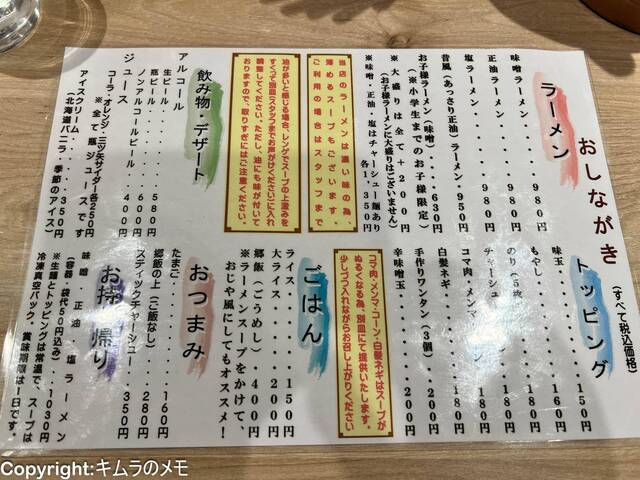 おしながき
(すべて税込価格)
ラーメン
味噌ラーメン・・・・・980円
正油ラーメン・・・・・980円
塩ラーメン・・・・・・980円
昔風(あっさり正油)ラーメン・950円
お子様ラーメン(味噌)・・・・650円
(※小学生までのお子様限定)
※大盛りは全て+200円
(お子様ラーメンに大盛りはございません)
※味噌・正油・塩はチャーシュー麺あり
各1,380円
当店のラーメンは濃い味の為、
薄めるスープもございます。
ご利用の場合はスタッフまで
油が多いと感じる場合、レンゲでスープの上澄みを
すくって別皿(スタッフまでお声がけください)に入れ
調整してください。ただし、油にも味が付いて
おりますので、取りすぎにはご注意ください。
飲み物・デザート
アルコール
生ビール・・・・・・580円
瓶ビール・・・・・・600円
ノンアルコールビール・・400円
ジュース
コーラ・オレンジ・三ツ矢サイダー各250円
※全て瓶ジュースです
アイスクリーム・・・・・350円
(北海道バニラ・季節のアイス)
トッピング
味玉・・・・・・・150円
もやし・・・・・・160円
のり(5枚)
チャーシュー・・・・180円
コマ肉・メンマ・・・180円
白髪ネギ・・・・・180円
手作りワンタン(3個)・200円
辛味噌玉・・・・・200円
コマ肉・メンマ・コーン・白髪ネギはスープが
ぬるくなる為、別皿にて提供いたします。
少しづつ入れながらお召し上がりください
ごはん
ライス・・・・・150円
大ライス・・・・200円
郷飯(ごうめし)・・400円
※ラーメンスープをかけて、
おじや風にしてもオススメ!
おつまみ
たまご・・・・・・・160円
郷飯の上(ご飯なし)・・280円
スティックチャーシュー・・350円
お持ち帰り
味噌・正油・塩ラーメン
(容器・袋代50円込み)・・1030円
※生麺とトッピングは常温で、スープは
冷凍真空パック、賞味期限は1日です。
Copyright:キムラのメモ